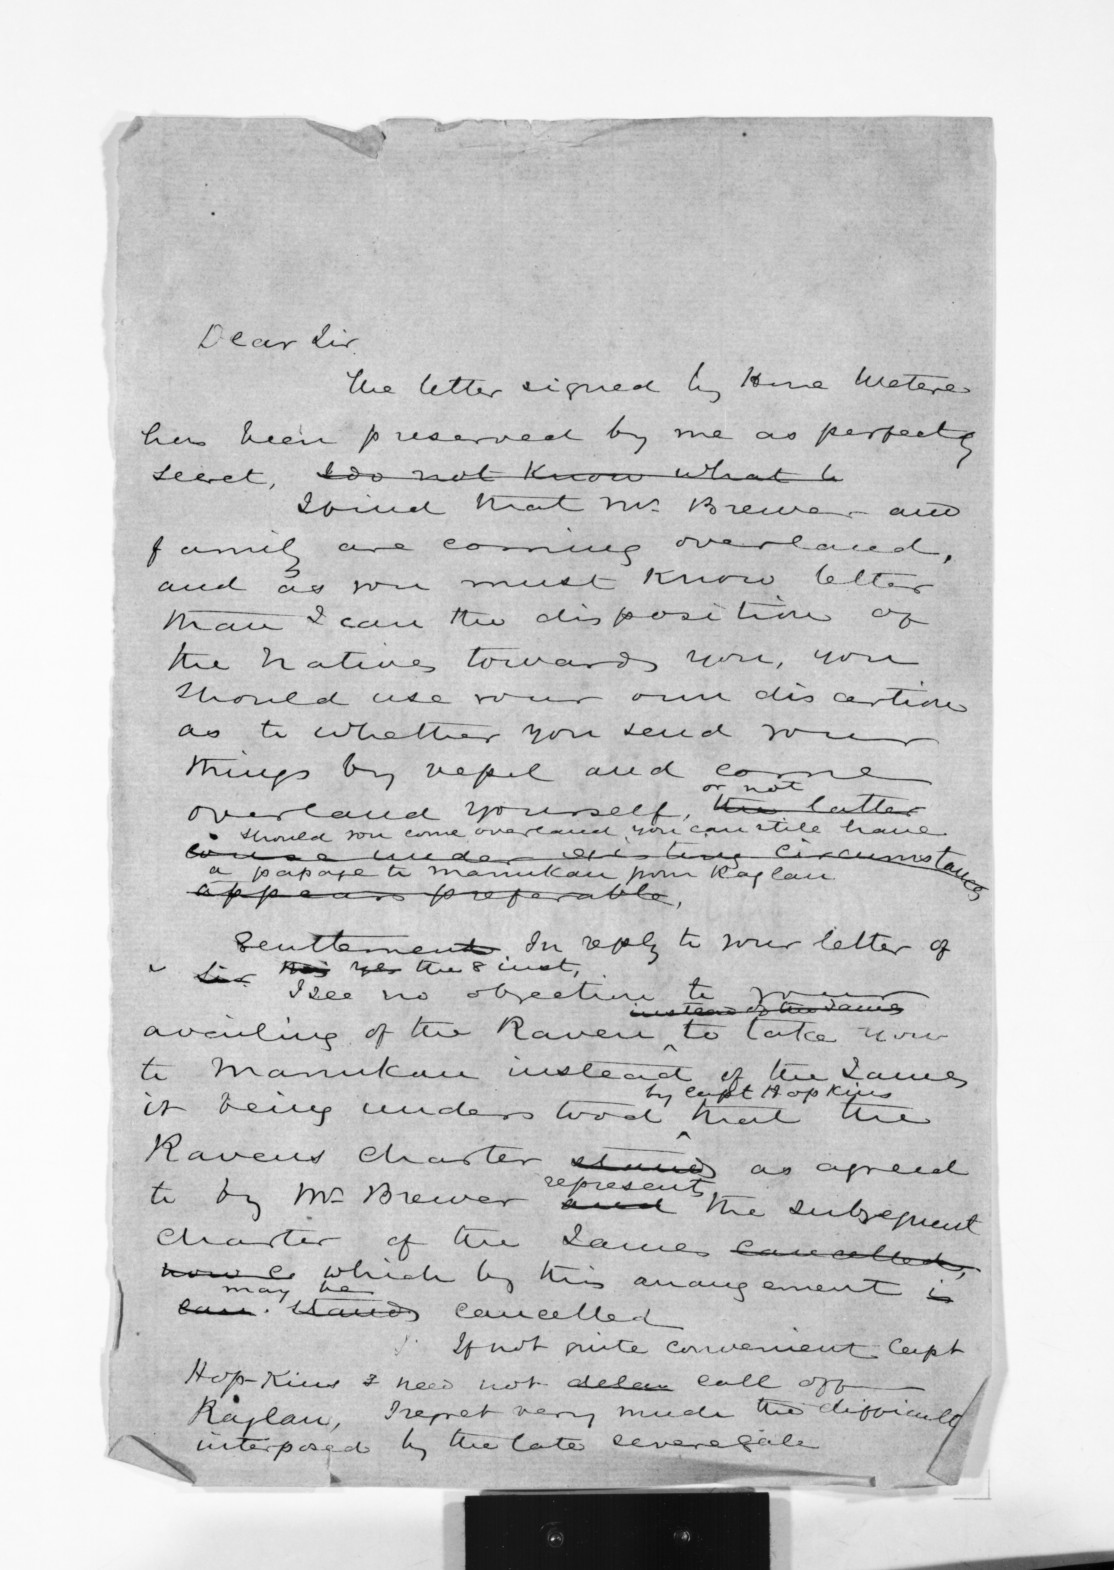 Dear Sir
The letter signed by Hone Wetere
has been preserved by me as perfectly
secret, I do not know what to
I find that Mr Brewer and
family are coming overland,
and as you must know better
than I can the disposition of
the Natives towards you, you
should use your own discertion
as to whether you send your
things by vessel and come
or not
overland yourself, the latter
should you come overland you can still have
course under existing circumstances
a passage to Manukau from Raglan
appears preferable,
Gentlemen In reply to your letter of
Sir the 8 inst,
I see no objection to your
instead of the James
availing of the Raven to take you
to Manukau instead of the James
by Capt Hopkins
it being understood that the
Ravens charter stands as agreed
represents
to by Mr Brewer and the subsequent
charter of the James cancelled,
now is which by this arrangement is
may be
can. stands cancelled
If not quite convenient Capt
Hopkins I need not delay call off
Raglan, I regret very much the difficulty
interposed by the late severe gale